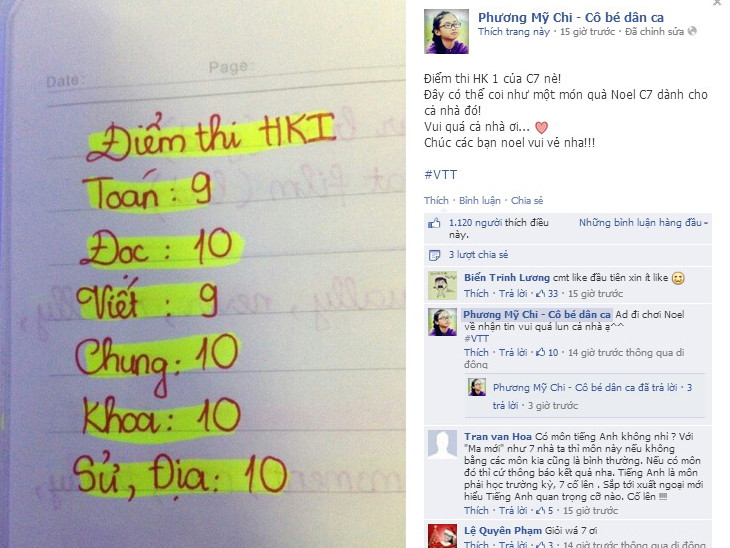 Date:
Page:
Điểm thi HKI
Toán: 9
Đọc: 10
Viết: 9
Chung: 10
Khoa: 10
Sử, Địa: 10
Phương Mỹ Chi - Cô bé dân ca
Thích trang này · 15 giờ trước · Đã chỉnh sửa
Điểm thi HK 1 của C7 nè!
Đây có thể coi như một món quà Noel C7 dành cho
cả nhà đó!
Vui quá cả nhà ơi...
Chúc các bạn noel vui vẻ nha!!!
#VTT
Thích · Bình luận · Chia sẻ
1.120 người thích điều
này.
Những bình luận hàng đầu
3 lượt chia sẻ
Biển Trinh Lương cmt like đầu tiên xin ít like
Thích · Trả lời · 33 · 15 giờ trước
Phương Mỹ Chi - Cô bé dân ca Ad đi chơi Noel
về nhận tin vui quá lun cả nhà ạ^^
#VTT
Thích · Trả lời · 10 · 14 giờ trước thông qua di
động
Phương Mỹ Chi - Cô bé dân ca đã trả lời · 3
trả lời · 3 giờ trước
Tran van Hoa Có môn tiếng Anh không nhỉ ? Với
"Ma mới" như 7 nhà ta thì môn này nếu không
bằng các môn kia cũng là bình thường. Nếu có môn
đó thì cứ thông báo kết quả nha. Tiếng Anh là môn
phải học trường kỳ, 7 cố lên . Sắp tới xuất ngoại mới
hiểu Tiếng Anh quan trọng cỡ nào. Cố lên !!!
Thích · Trả lời · 5 · 15 giờ trước
Lệ Quyên Phạm Giỏi wá 7 ơi
Thích · Trả lời · 3 · 14 giờ trước thông qua di động